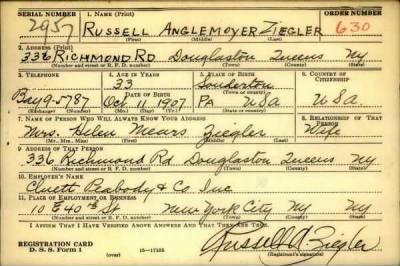 SERIAL NUMBER 1. NAME (Print) ORDER NUMBER
2957 RUSSELL ANGLEMOYER ZIEGLER 630
(First) (Middle) (Last)
2. ADDRESS (Print)
336 RICHMOND RD Douglaston Queens NY
(Number and street or R. F. D. number) (Town) (County) (State)
3. TELEPHONE 4. AGE IN YEARS 5. PLACE OF BIRTH 6. COUNTRY OF CITIZENSHIP
33 Souderton
Bay 9-5787 DATE OF BIRTH (Town or county)
Oct 11 1907 PA USA USA
(Exchange) (Number) (Mo.) (Day) (Yr.) (State or country)
7. NAME OF PERSON WHO WILL ALWAYS KNOW YOUR ADDRESS 8. RELATIONSHIP OF THAT PERSON
Mrs. Helen Mears Ziegler Wife
(Mr., Mrs., Miss) (First) (Middle) (Last)
9. ADDRESS OF THAT PERSON
336 Richmond Rd Douglaston Queens NY
(Number and street or R. F. D. number) (Town) (County) (State)
10. EMPLOYER'S NAME
Cluett Peabody & Co Inc
11. PLACE OF EMPLOYMENT OR BUSINESS
10 E 40th St New York City NY
(Number and street or R. F. D. number) (Town) (County) (State)
I AFFIRM THAT I HAVE VERIFIED ABOVE ANSWERS AND THAT THEY ARE TRUE.
REGISTRATION CARD
D. S. S. Form 1 (over) 16-17105 Russell A. Ziegler
(Registrant's signature)